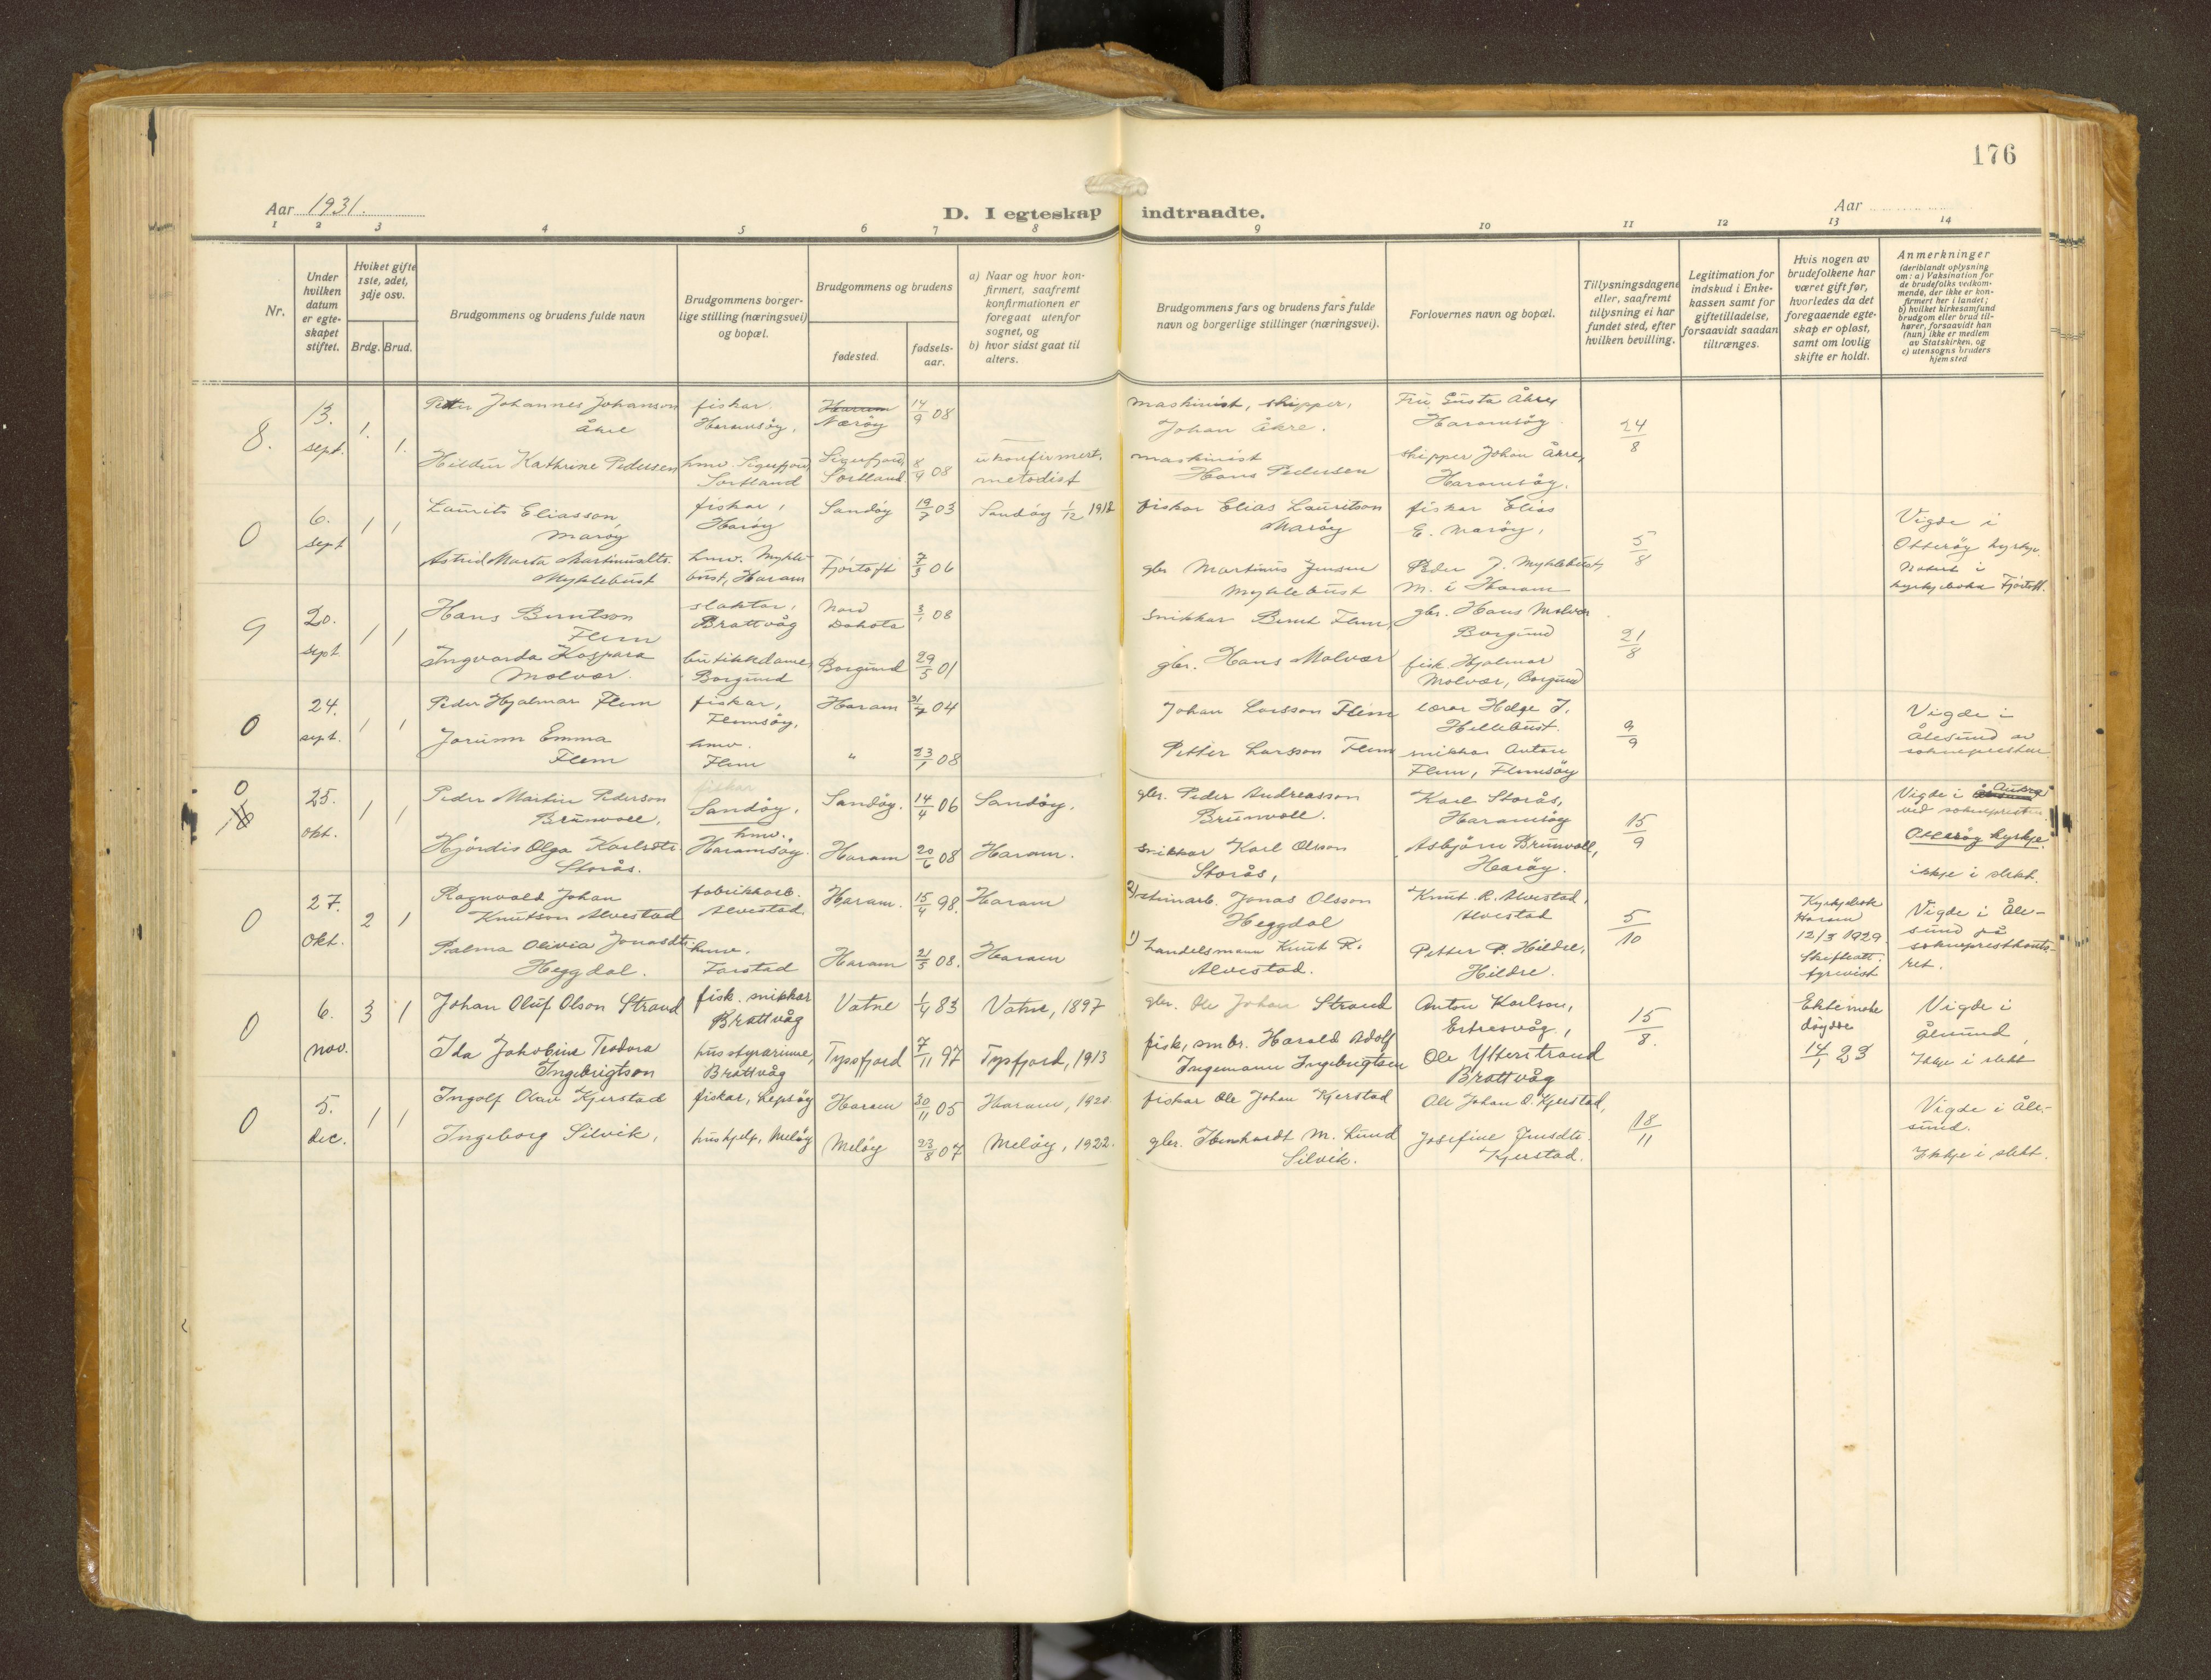 176
Aar 1931.
D. I egteskap indtraadte.
Aar
1 2 3 4 5 6 7 8 9 10 11 12 13 14
Nr.
Under
hvilken
datum
er egte-
skapet
stiftet.
Hviket gifte
1ste, 2det,
3dje osv.
Brdg. Brud.
Brudgommens og brudens fulde navn
Brudgommens borger-
lige stilling (næringsvei)
og bopæl.
Brudgommens og brudens
fødested.
fødsels-
aar.
a) Naar og hvor kon-
firmert, saafremt
konfirmationen er
foregaat utenfor
sognet, og
b) hvor sidst gaat til
alters.
Brudgommens fars og brudens fars fulde
navn og borgerlige stillinger (næringsvei).
Forlovernes navn og bopæl.
Tillysningsdagene
eller, saafremt
tillysning ei har
fundet sted, efter
hvilken bevilling.
Legitimation for
indskud i Enke-
kassen samt for
giftetilladelse,
forsaavidt saadan
tiltrænges.
Hvis nogen av
brudefolkene har
været gift før,
hvorledes da det
foregaaende egte-
skap er opløst,
samt om lovlig
skifte er holdt.
Anmerkninger
(deriblandt oplysning
om: a) Vaksination for
de brudefolks vedkom-
mende, der ikke er kon-
firmert her i landet;
b) hvilket kirkesamfund
brudgom eller brud til-
hører, forsaavidt han
(hun) ikke er medlem
av Statskirken, og
c) utensogns bruders
hjemsted
8.
13.
sept.
1.
1.
Petter Johannes Johanson
Åkre
fiskar
Haramsöy,
Haram
Næröy
14/9 08
maskinist, skipper,
Johan Åkre.
Fru Gusta Åkre,
Haramsöy
24/8
Hildur Kathrine Pedersen
hmv. Sigerfjord,
Sortland
Sigerfjord,
Sortland
8/9 08
ukonfirmert,
metodist
maskinist
Hans Pedersen
skipper Johan Åkre,
Haramsöy.
0
6.
sept
1 1
Laurits Eliasson
Maröy
fiskar,
Haröy
Sandöy
19/7 03
Sandöy 1/12 1918
fiskar Elias Lauritson
Maröy
fiskar Elias
E. Maröy,
5/8
Vigde i
Otteröy kyrkje.
Astrid Marta Martinusdtr.
Myklebust
hmv. Mykle-
bust, Haram
Fjörtoft
7/3 06
gbr Martinus Jensen
Myklebust
Peder J. Myklebust,
M. i Haram
kyrkjeboka Fjörtoft.
9
20.
sept.
1 1
Hans Berntson
Flem
slaktar,
Brattvåg
Nord
Dakota
3/1 08
Snikkar Bernt Flem,
gbr. Hans Molvær
Borgund
21/8
Ingvarda Kaspara
Molvær.
butikkdame,
Borgund
Borgund
29/5 01
gbr. Hans Molvær
fisk. Hjalmar
Molvær, Borgund
0
24.
sept.
1 1
Peder Hjalmar Flem
fiskar,
Flemsöy,
Haram
31/7 04
Johan Larsson Flem
lærar Helge J.
Hellebust.
9/9
Vigde i
Ålesund av
soknepresten
Jorunn Emma
Flem
hmv.
Flem
"
23/1 08
Petter Larsson Flem
snikkar Anton
Flem, Flemsöy
0
10
25.
okt.
1 1
Peder Martin Pederson
Brunvoll,
fiskar
Sandöy,
Sandöy.
14/4 06
Sandöy.
gbr. Peder Andreasson
Brunvoll.
Karl Storås,
Haramsöy
15/9
Vigde i
ved soknepresten.
Otteröy kyrkje.
Hjördis Olga Karlsdtr.
Storås.
hmv.,
Haramsöy.
Haram
20/6 08
Haram.
Snikkar Karl Olson
Storås,
Asbjörn Brunvoll,
Haröy.
ikkje i slekt.
0
27.
okt.
2 1
Ragnvald Johan
Knutson Alvestad
fabrikkarb.
Alvestad
Haram.
15/4 98.
Haram
2) Jonas Olsson
Heggdal
Knut R. Alvestad,
Alvestad
5/10
Kyrkjebok
Haram
12/3 1929
Skifteatt.
fyrevist
Vigde i Åle-
sund på
soknepresthonto-
ret.
Palma Olivia Jonasdtr.
Heggdal.
hmv.
Farstad
Haram
21/5 08.
Haram
1) Landelsmann Knut R.
Alvestad.
Petter P. Hildre,
Hildre.
0
6.
nov.
3 1
Johan Oluf Olson Strand
fisk. snikkar
Brattvåg
Vatne
1/4 83
Vatne, 1897
gbr. Ole Johan Strand
Anton Karlson,
Ertresvåg,
15/8.
Ektemake
döydde
14/1 23
Vigde i
Ålesund,
Ikkje i slekt
Ida Jakobine Teodora
Ingebrigtson
husstyrarinne,
Brattvåg
Tyssfjord
7/11 97
Tysfjord, 1913
fisk, smbr. Harald Adolf
Ingemann Ingebrigtsen
Ole Ytterstrand
Brattvåg
0
5.
dec.
1 1
Ingolf Olav Kjerstad
fiskar, Lepsöy
Haram
30/11 05
Haram, 1920.
fiskar Ole Johan Kjerstad
Ole Johan O. Kjerstad,
18/11
Vigde i Åle-
sund.
Ikkje i slekt.
Ingeborg Silvik,
hushjelp, Melöy
Melöy
23/8 07
Melöy, 1922.
gbr. M. Lund
Silvik.
Josefine Jensdtr.
Kjerstad.